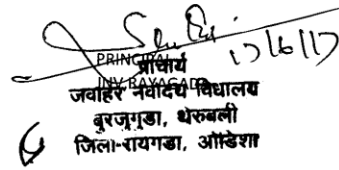 17/6/17
PRINCIPAL
प्राचार्य
JNV, RAYAGADA
जवाहर नवोदय विद्यालय
बुरजुगुडा, थेरुबली
जिला-रायगडा, ओडिशा